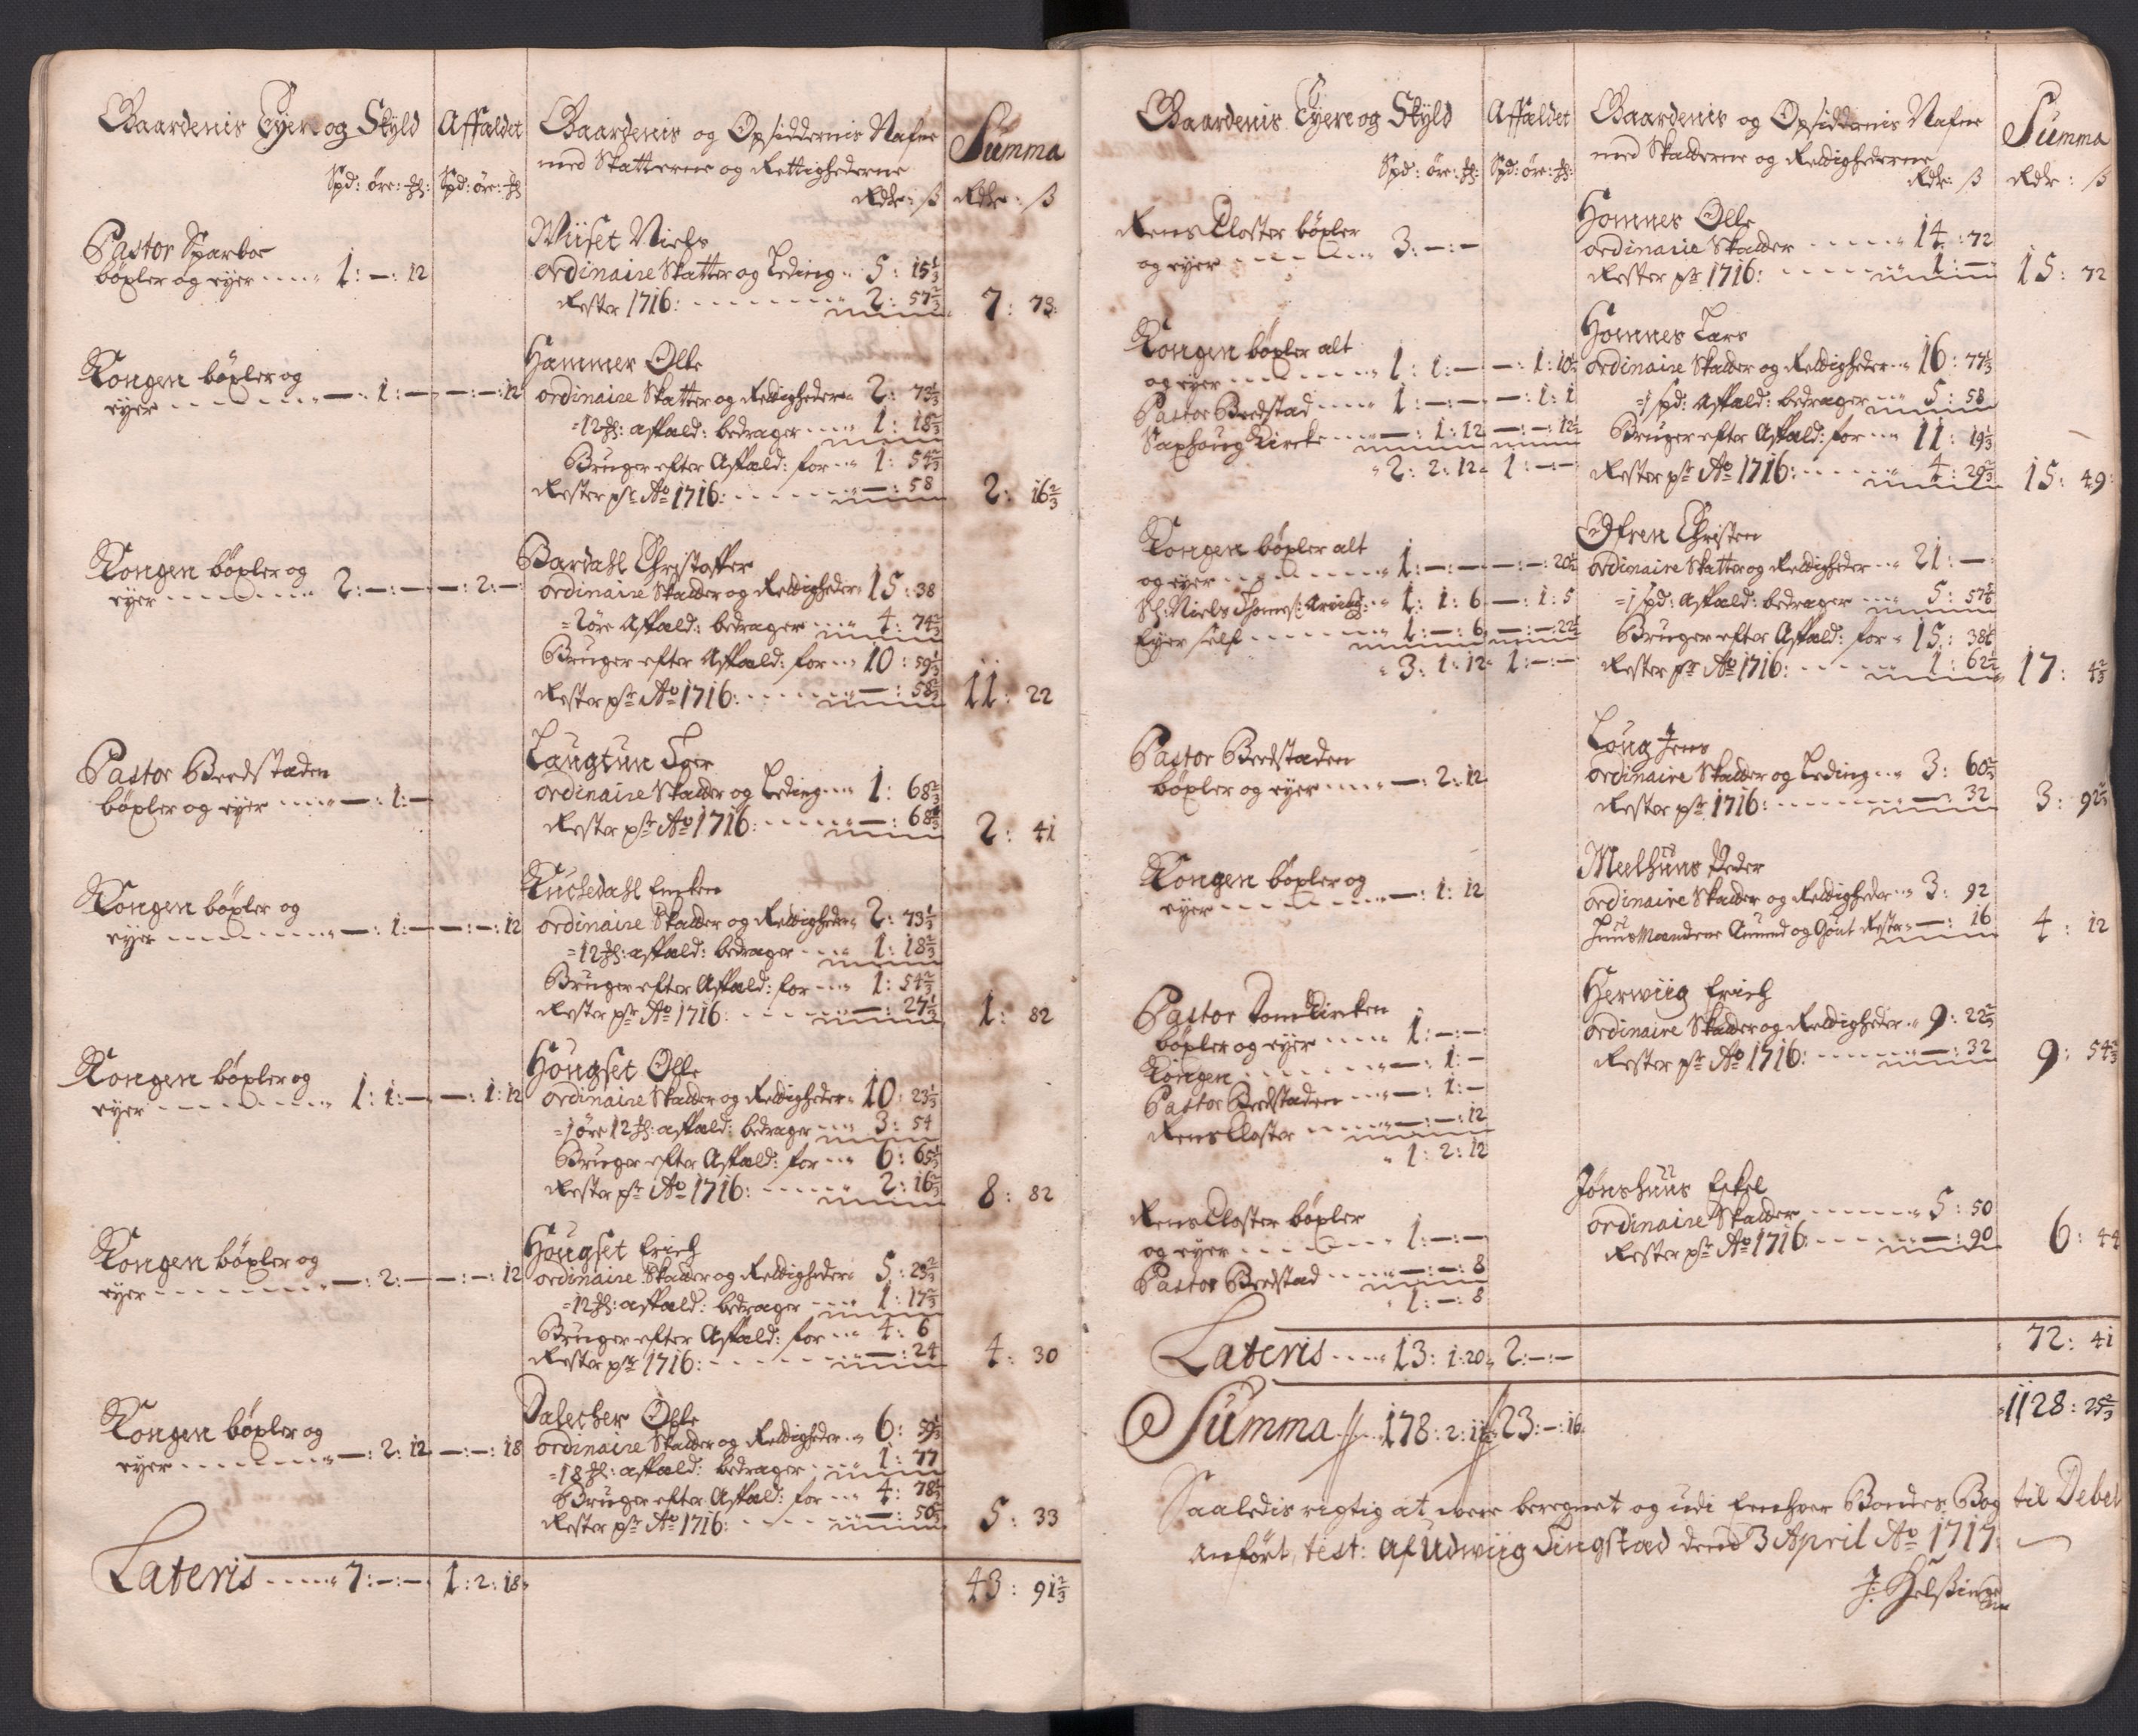 Gaardenis Eyere og Skyld
Affældet
Gaardenis og Opsiddernis Nafne
med Skatterne og Rettighederne
Summa
Spd: øre:
Spd: øre:
Rdlr: ß
Rdlr: ß
Pastor Sparboe
bøxler og eyer ---- 1: —: 12
Wiiset Niels
ordinaire Skatter og Leding - 5: 15 1/3
Rester 1716: ---- 2: 57 2/3
7: 73:
Kongen bøxler og
eyer ---- —: 1: — —: —: 12
Hammer Olle
ordinaire Skatter og Rettigheder - 2: 73 1/3
= 12 affæld: bedrager ---- 1: 18 2/3
Bruger efter Affæld: for --- 1: 54 2/3
Rester pr Ao 1716: ---- —: 58
2: 16 2/3
Kongen bøxler og
eyer ---- 2: —: — —: 2: —
Bardahl Christoffer
ordinaire Skatter og Rettigheder - 15: 38
= 2 øre Affæld: bedrager --- 4: 74 2/3
Bruger efter Affæld: for --- 10: 59 1/3
Rester pr Ao 1716: ---- —: 58 2/3
11: 22
Pastor Bredstaden
bøxler og eyer ---- —: 1: —
Laugtun Iver
ordinaire Skatter og Leding --- 1: 68 2/3
Rester pr Ao 1716: ---- —: 68 1/3
2: 41
Kongen bøxler og
eyer ---- —: 1: — —: —: 12
ordinaire Skatter og Rettigheder - 2: 73 1/3
= 12 affæld: bedrager --- 1: 18 2/3
Bruger efter Affæld: for --- 1: 54 2/3
Rester pr Ao 1716: ---- —: 27 1/3
1: 82
Kongen bøxler og
eyer ---- 1: 1: — —: 1: 12
Hougset Olle
ordinaire Skatter og Rettigheder - 10: 23 1/3
= 1 øre 12 affæld: bedrager --- 3: 54
Bruger efter Affæld: for --- 6: 65 1/3
Rester pr Ao 1716: ---- 2: 16 2/3
8: 82
Kongen bøxler og
eyer ---- —: 2: — —: —: 12
Hougset Erich
ordinaire Skatter og Rettigheder - 5: 23 2/3
= 12 affæld: bedrager --- 1: 17 2/3
Bruger efter Affæld: for --- 4: 6
Rester pr 1716: ---- —: 24
4: 30
Kongen bøxler og
eyer ---- —: 2: 12 —: —: 18
Olle
ordinaire Skatter og Rettigheder - 6: 59 1/3
= 18 affæld: bedrager --- 1: 77
Bruger efter Affæld: for --- 4: 78 1/3
Rester pr Ao 1716: ---- —: 50 2/3
5: 33
Lateris ---- 7: —: — 1: 2: 18
43: 91 2/3
Gaardenis Eyere og Skyld
Affældet
Gaardenis og Opsiddernis Nafne
med Skatterne og Rettighederne
Summa
Spd: øre:
Spd: øre:
Rdlr: ß
Rdlr: ß
Rens Closter bøxler
og eyer ---- 3: —: —
Homnes Olle
ordinarie Skatter ---- 14: 72
Rester pr 1716: ---- 1: —
15: 72
Kongen bøxler alt
og eyer ---- 1: 1: — —: 1: 10 1/2
Pastor Bredstad ---- 1: —: — —: 1: 1
Saxhoug Kircke --- —: 1: 12 —: —: 12 1/2
2: 2: 12 1: —: —
Homnes Lars
ordinaire Skatter og Rettigheder --- 16: 77 1/3
= 1 spd: Affæld: bedrager --- 5: 58
Bruger efter Affæld: for --- 11: 19 1/3
Rester pr Ao 1716: ---- 4: 29 2/3
15: 49
Kongen bøxler alt
og eyer ---- 1: —: — —: —: 20 1/2
Sl: Niels Thomes: --- 1: 1: 6 —: 1: 5
Eyer self ---- 1: —: 6 —: —: 22 1/2
3: 1: 12 1: —: —
Øfren Christen
ordinaire Skatter og Rettigheder --- 21: —
= 1 spd: Affæld: bedrager --- 5: 57
Bruger efter Affæld: for - 15: 38
Rester pr Ao 1716: ---- 1: 62
17: 4 2/3
Pastor Bredstaden
bøxler og eyer ---- —: 2: 12
Loug Jens
ordinaire Skatter og Leding --- 3: 60 2/3
Rester pr 1716: ---- —: 32
3: 92 2/3
Kongen bøxler og
eyer ---- —: 1: 12
Meelhuus Peder
ordinaire Skatter og Rettigheder --- 3: 92
og Rester - —: 16
4: 12
Pastor DomKircken
bøxler og eyer ---- 1: —: —
Kongen ---- —: 1: —
Pastor Bredstaden --- —: 1: —
Rens Closter ---- —: —: 12
1: 2: 12
Herwiig Erich
ordinaire Skatter og Rettigheder - 9: 22 2/3
Rester pr Ao 1716: ---- —: 32
9: 54 2/3
Rens Closter bøxler
og eyer ---- 1: —: —
Pastor Bredstad ---- —: —: 8
1: —: 8
Jønshuus Eskel
ordinaire Skatter ---- 5: 50
Rester pr Ao 1716: ---- —: 90
6: 44
Lateris ---- 13: 1: 20 2: —: —
72: 41
Summa ---- 178: 2: 23: —: 16
1128: 25 2/3
Saaledis rigtig at være beregnet og udi Eenhver Bondes Bog til Debet
Anført, test: af Udwiig Tingstad dend 3 April Ao 1717